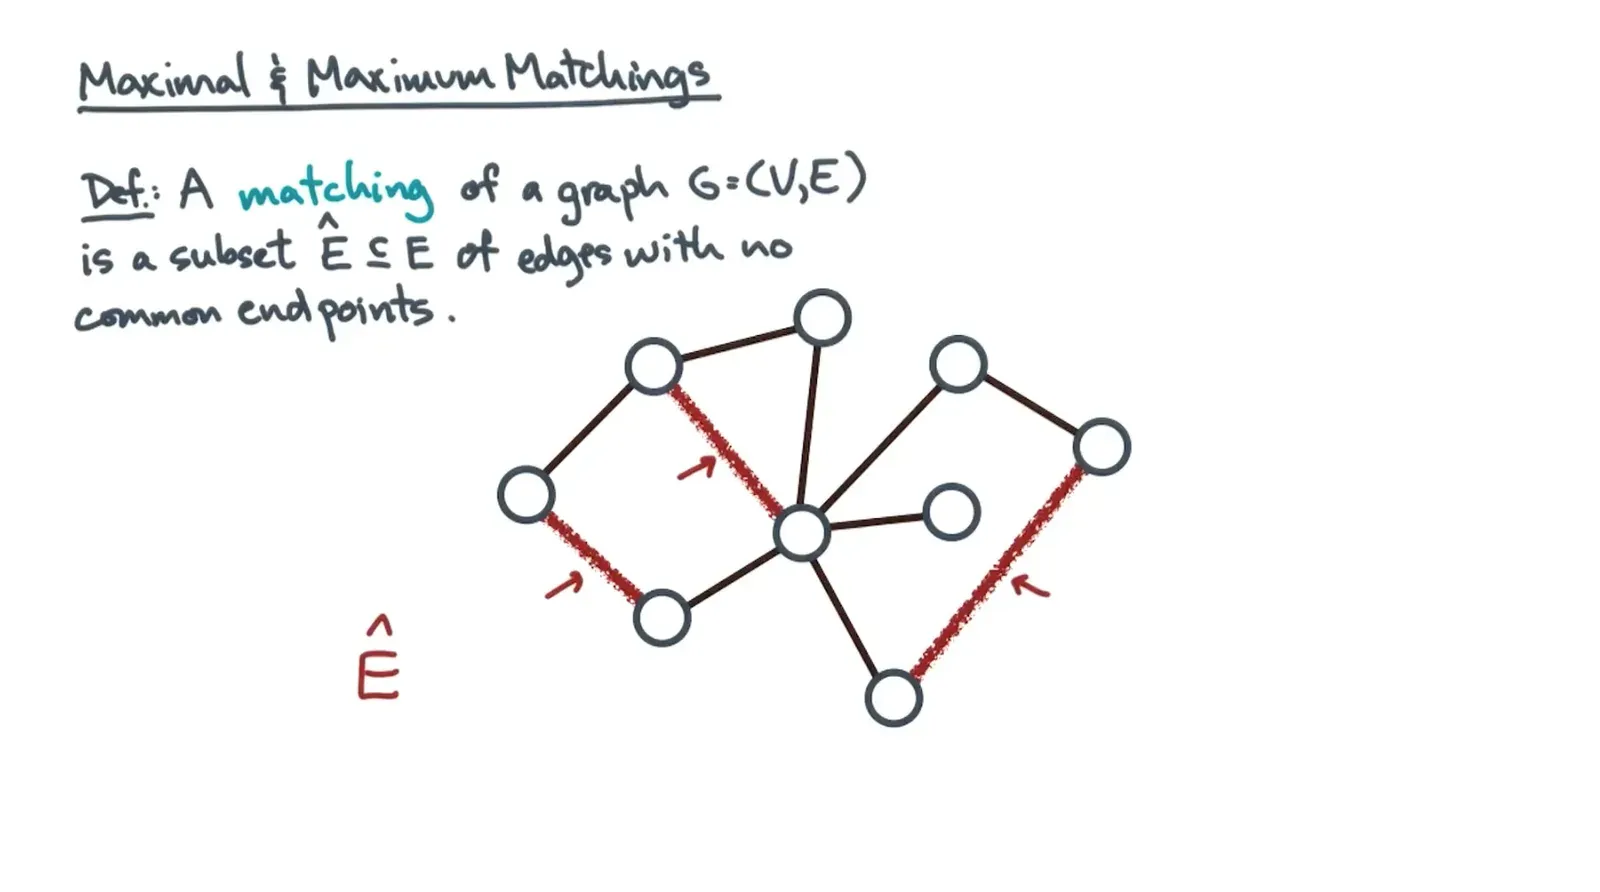 Maximal & Maximum Matchings
Def.: A matching of a graph G=(V,E)
is a subset Ê ⊆ E of edges with no
common endpoints.
Ê